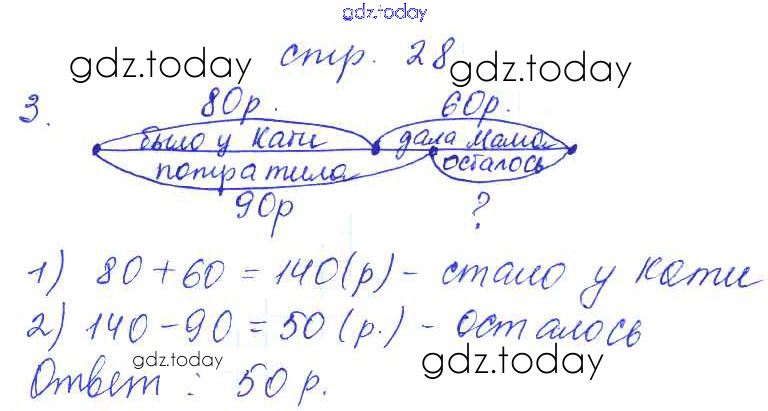 gdz.today
стр. 28
gdz.today gdz.today
3.
80р. 60р.
было у Кати дала мама
потратила осталось
90р ?
1) 80 + 60 = 140(р) - стало у Кати
2) 140 - 90 = 50 (р.) - осталось
gdz.today gdz.today
Ответ : 50 р.